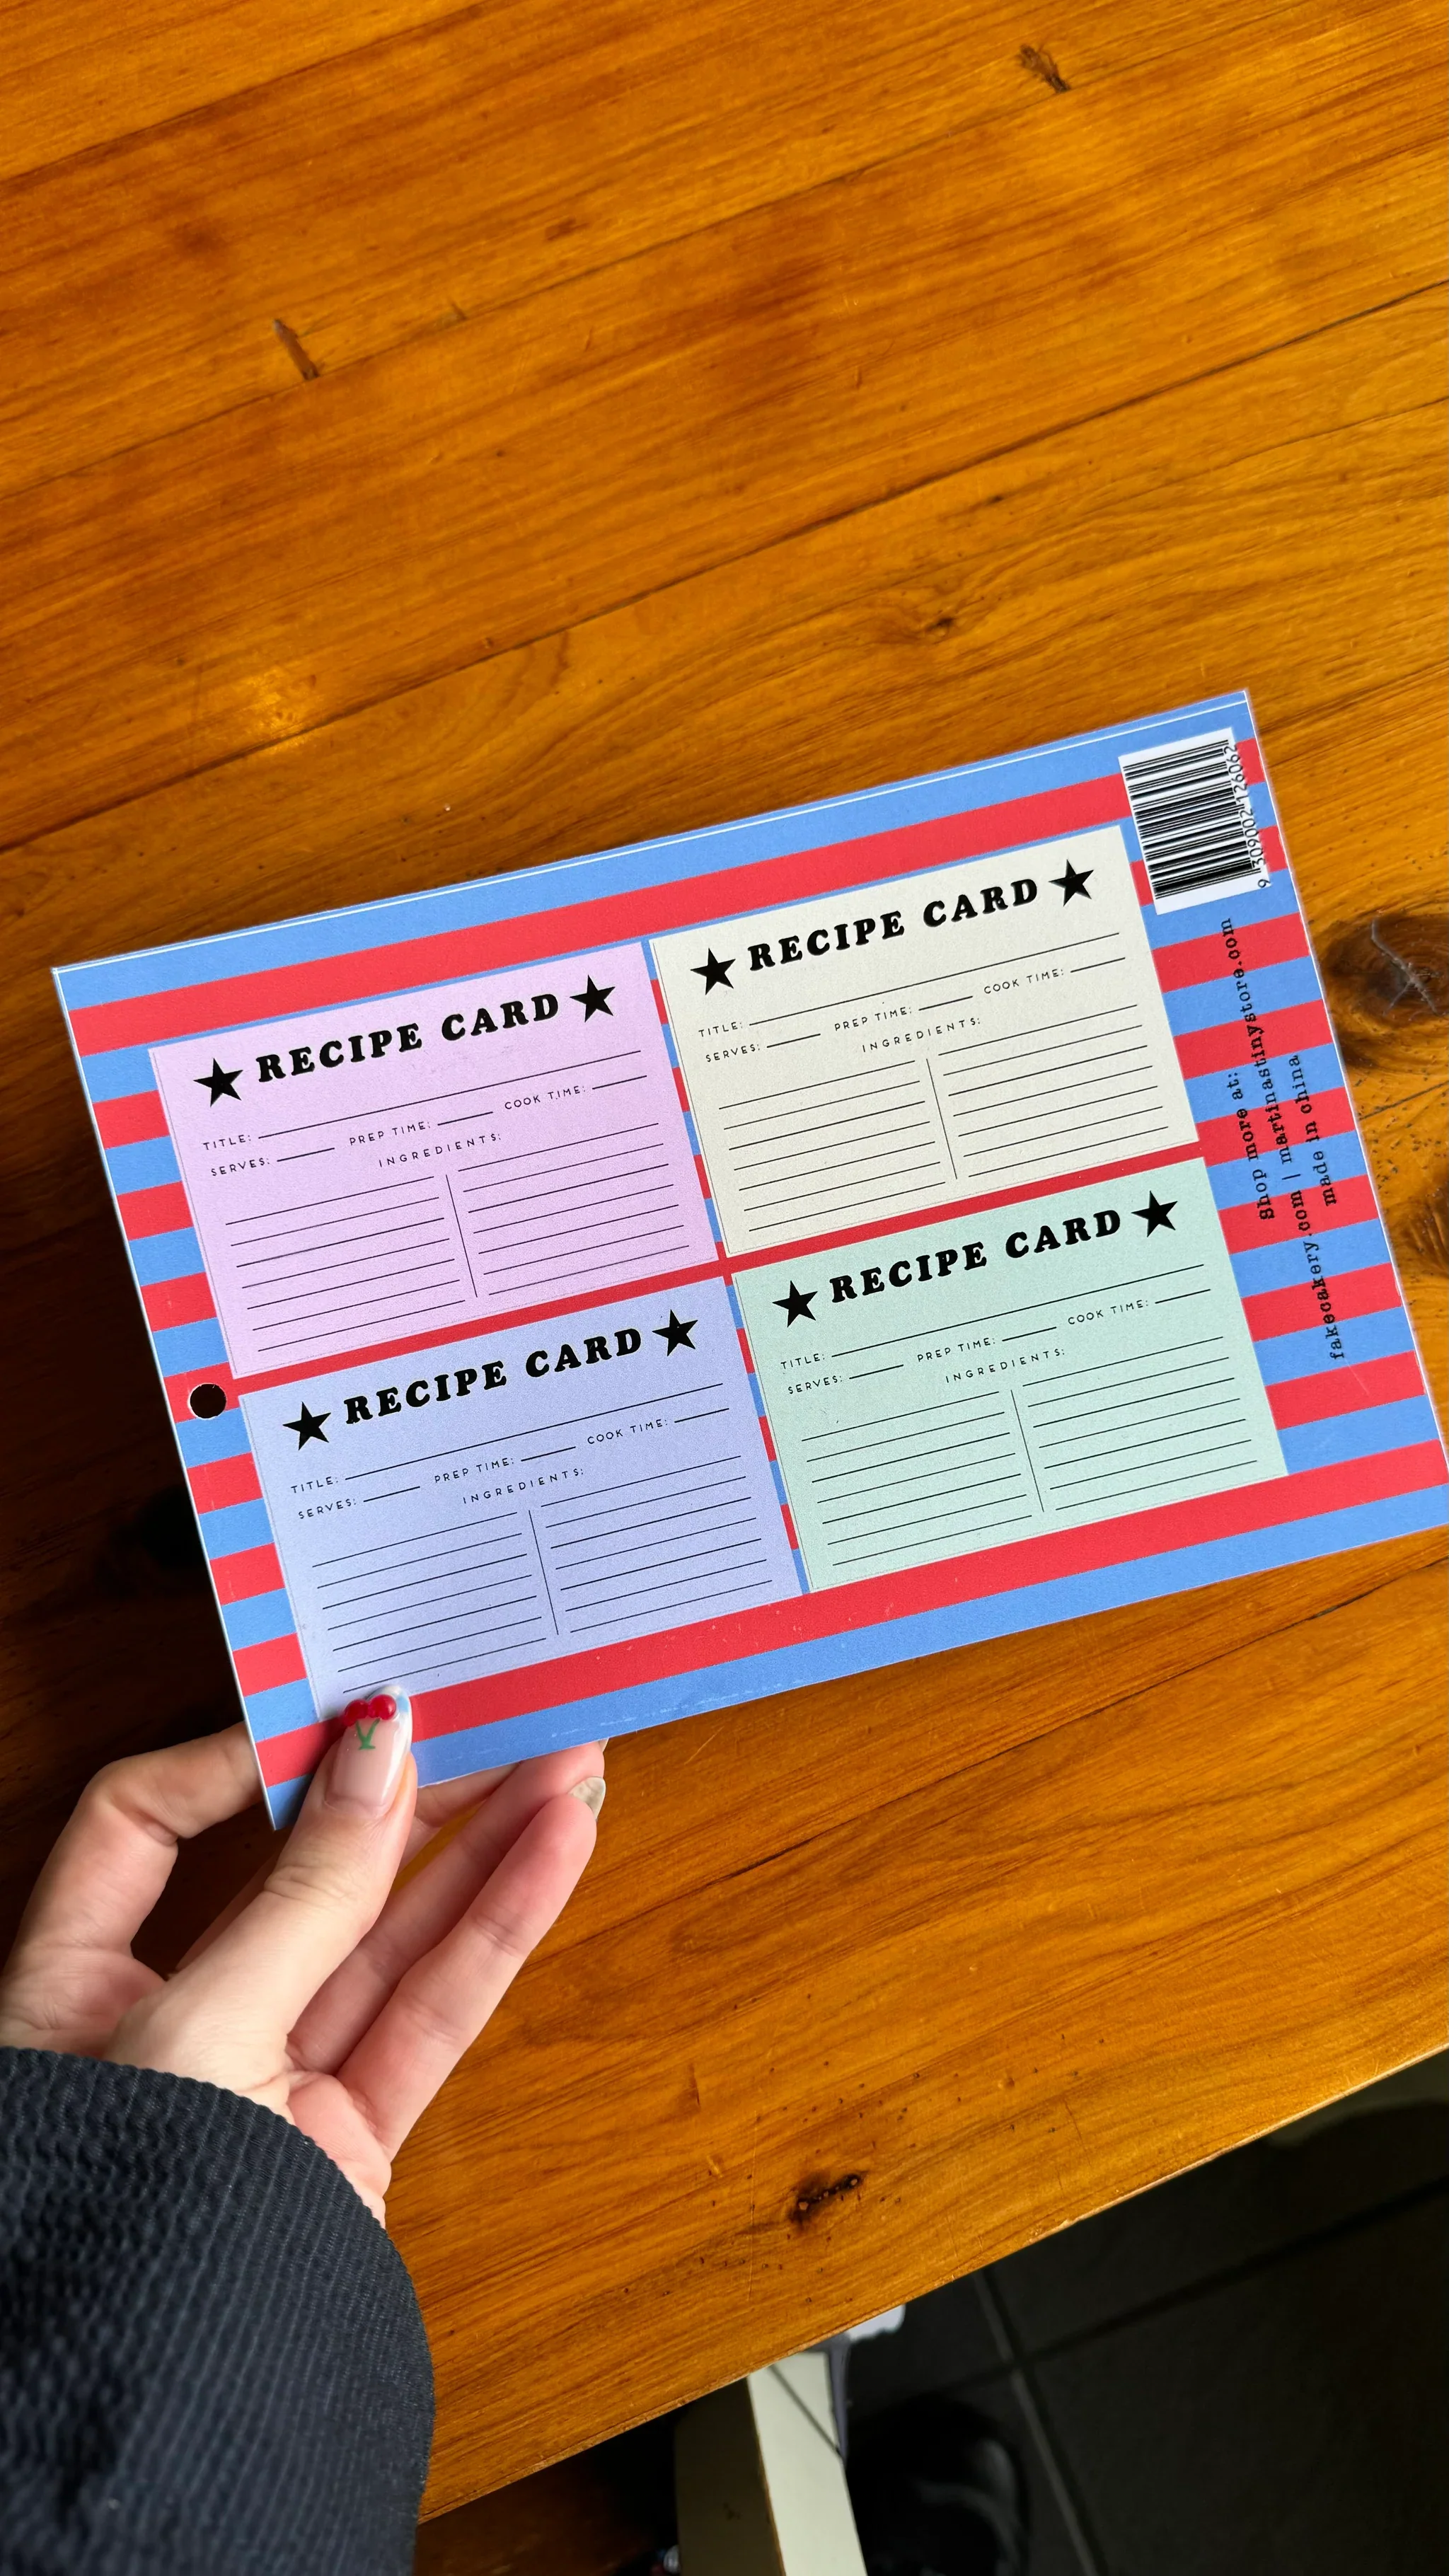 ★ RECIPE CARD ★
TITLE:
SERVES: PREP TIME: COOK TIME:
INGREDIENTS:
★ RECIPE CARD ★
TITLE:
SERVES: PREP TIME: COOK TIME:
INGREDIENTS:
★ RECIPE CARD ★
TITLE:
SERVES: PREP TIME: COOK TIME:
INGREDIENTS:
★ RECIPE CARD ★
TITLE:
SERVES: PREP TIME: COOK TIME:
INGREDIENTS:
9 309002 126062
Shop more at:
fakeoakery.com | martinastinystore.com
made in china